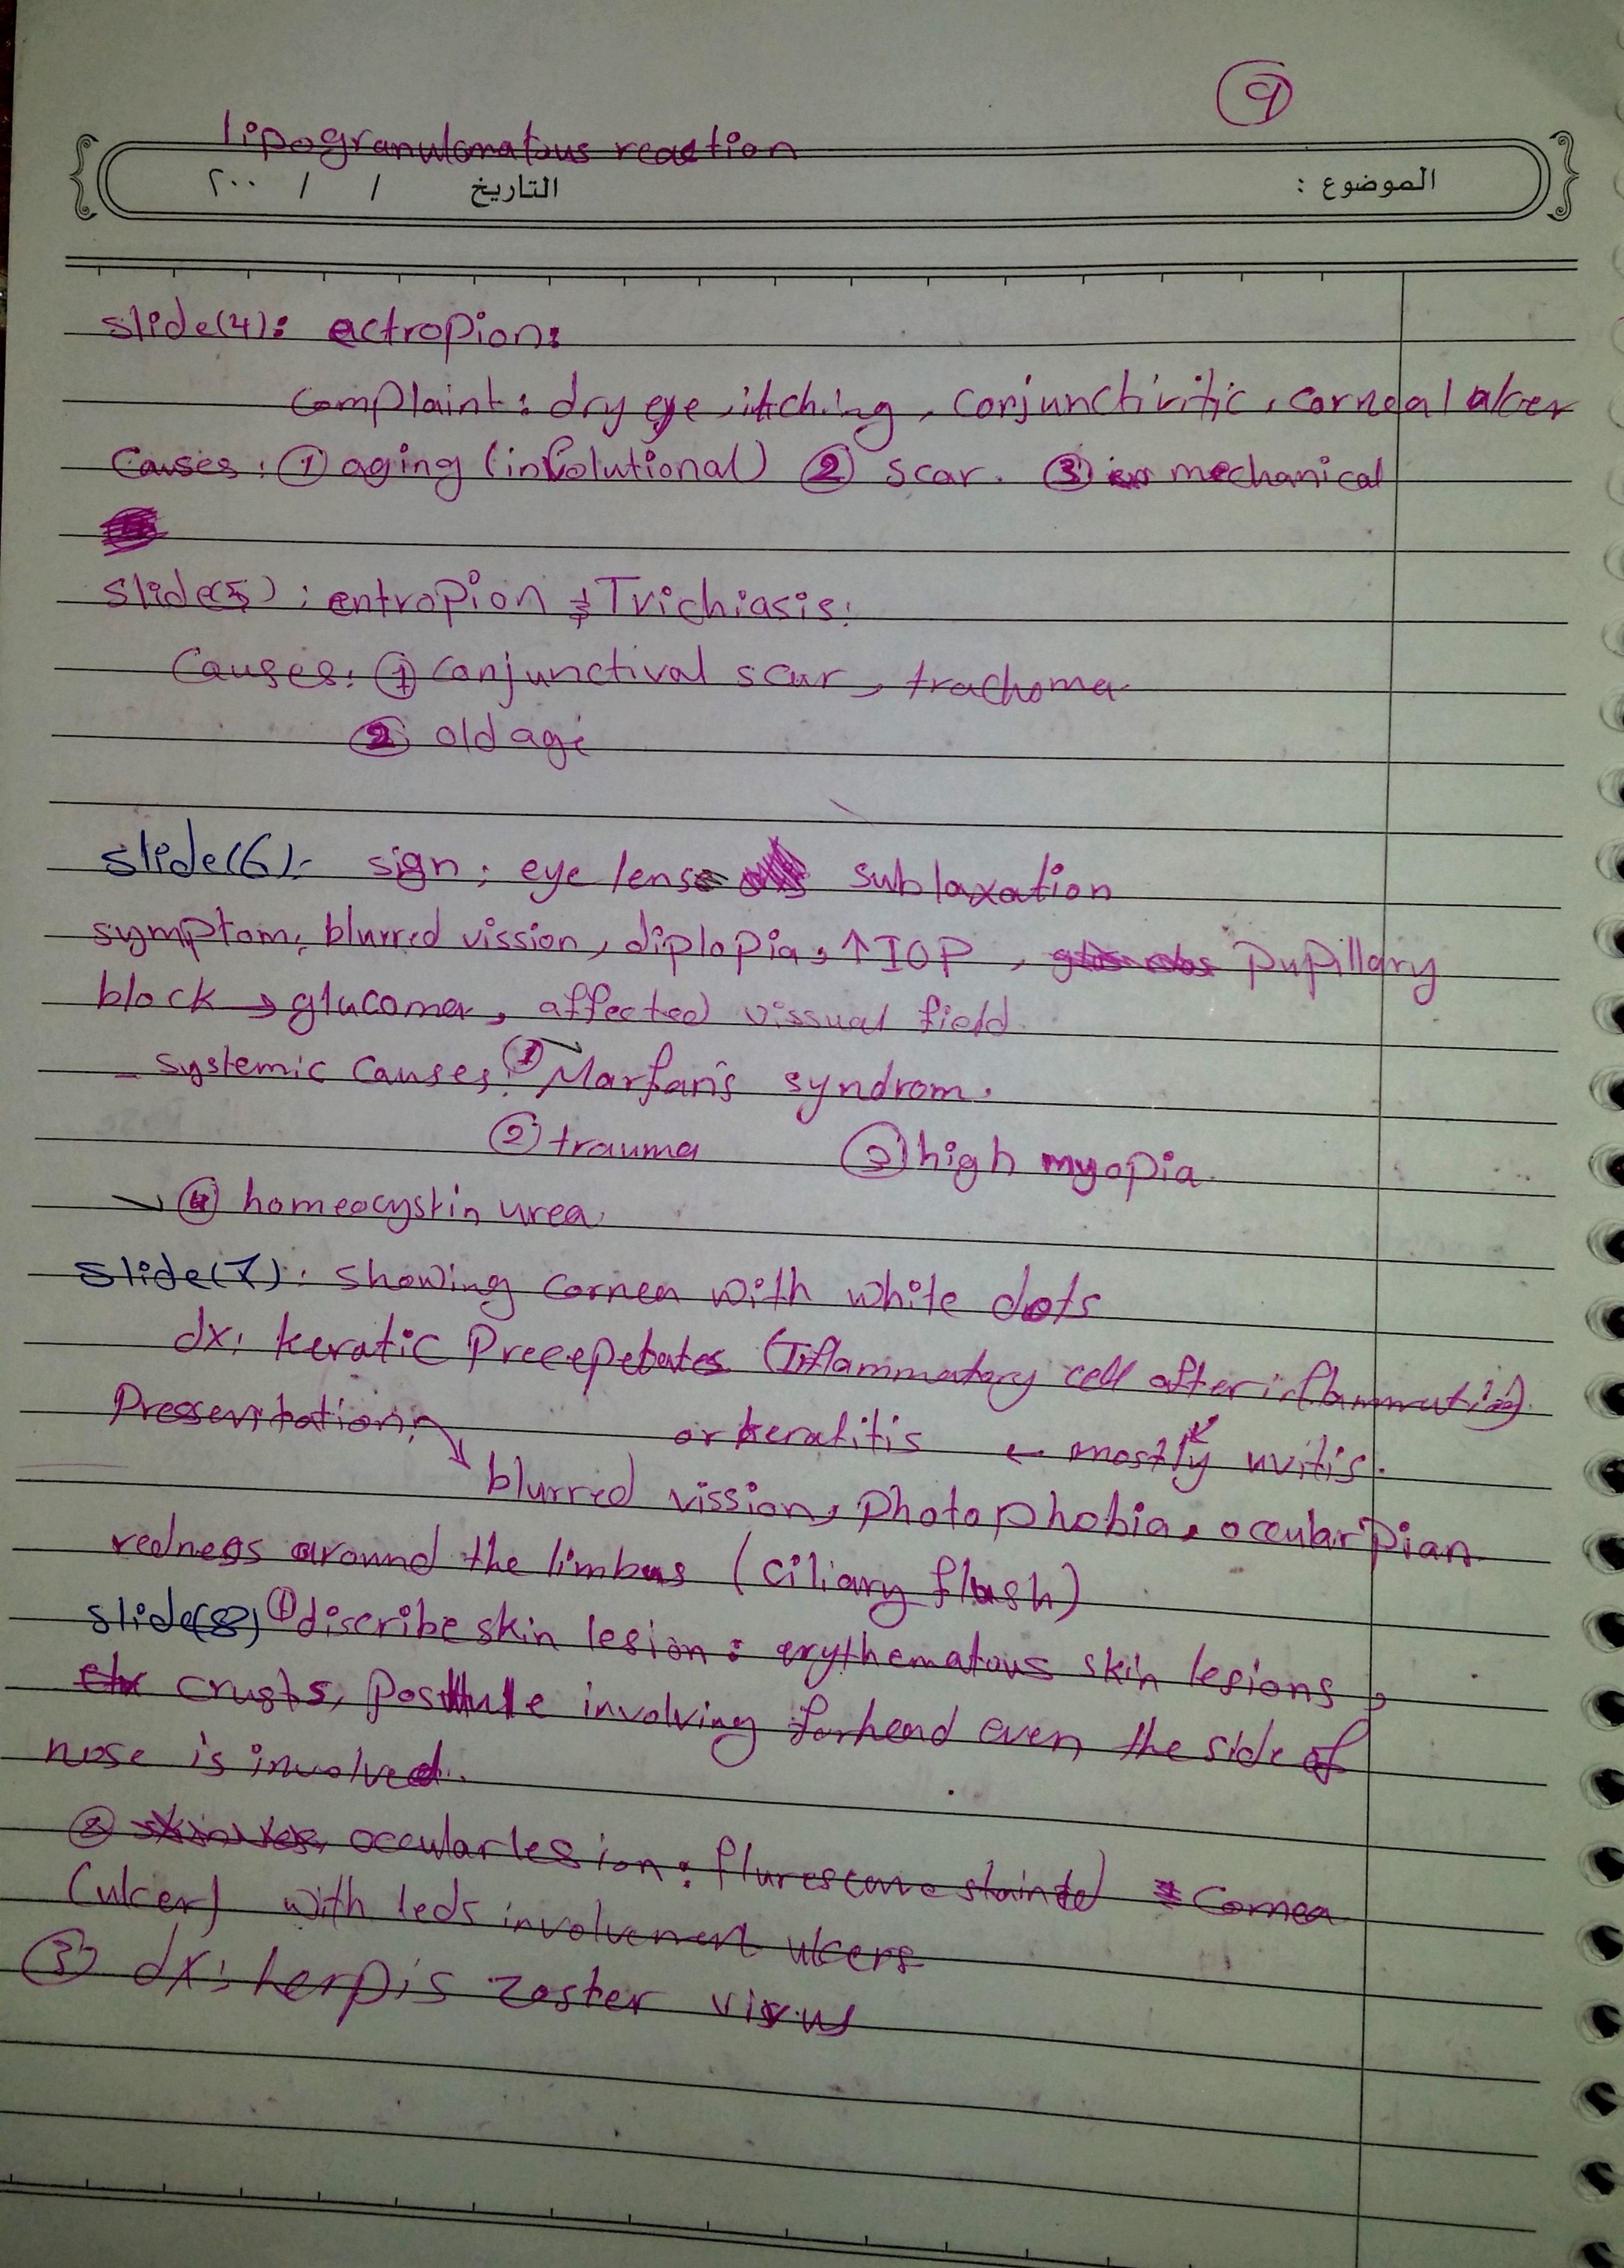 9
lipogranulomatous reaction
الموضوع : التاريخ / / ٢٠٠
slide(4): ectropion:
complaint: dry eye, itching, conjunctivitic, corneal ulcer
Causes: ① aging (involutional) ② scar. ③ mechanical
slide(5): entropion & Trichiasis:
Causes: ① conjunctival scar, trachoma
② old age
slide(6): sign: eye lens sublaxation
symptom: blurred vission, diplopia, ↑IOP, pupillary
block → glucoma, affected vissual field
- systemic causes: ① Marfan's syndrom.
② trauma ③ high myopia
④ homeocystin urea.
slide(7): showing cornea with white dots
dx: keratic Preceepebates (Inflammatory cell after inflammation)
Pressentation: or keratitis ← mostly uvitis.
blurred vission, photophobia, occular pian
redness around the limbus (ciliary flush)
slide(8) ① discribe skin lesion: erythematous skin lesions,
crusts, posttule involving forhead even the side of
nose is involved.
② occular lesion: flurescane stainted cornea
(ulcer) with leds involvement ulcers
③ dx: herpis zoster virus